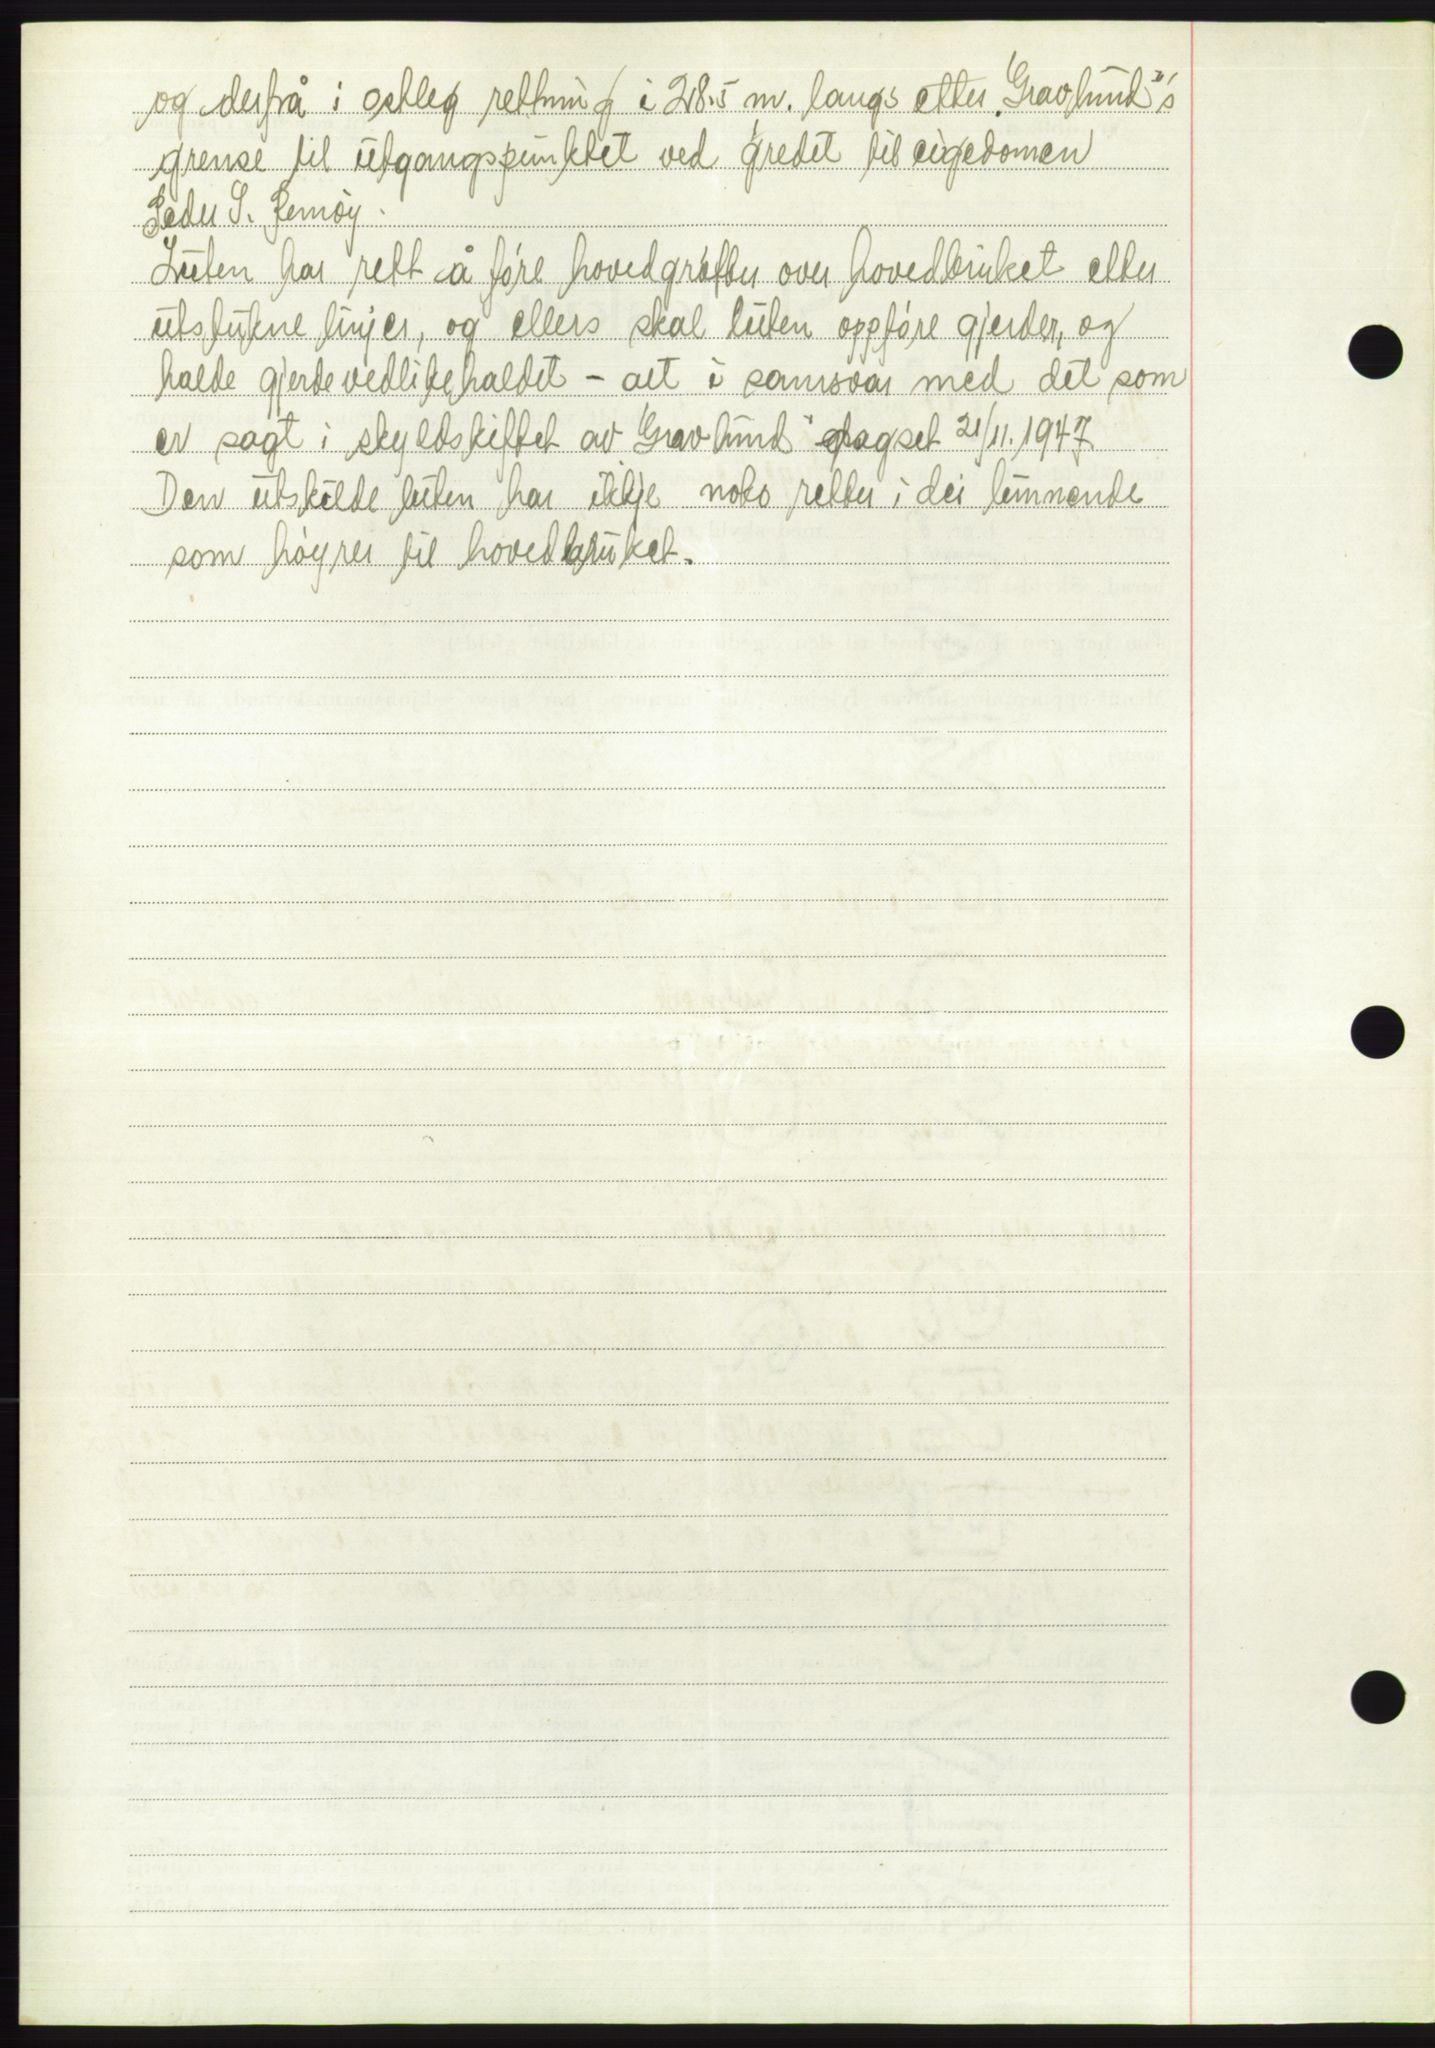 og derfrå i ostleg rettning i 28.5 m. langs etter "Gravlund"s
grense til utgangspunktet ved gredet til eigedomen
Peder S. Remøy.
Luten har rett å føre hovedgrøfter over hovedbruket etter
utstukne linjer, og ellers skal luten oppføre gjerder, og
halde gjerdevedlikehaldet - alt i samsvar med det som
er sagt i skyldskiftet av "Gravlund" dagset 21/11.1947
Den utskilde luten har ikkje noko retter i dei lunnende
som høyrer til hovedbruket.